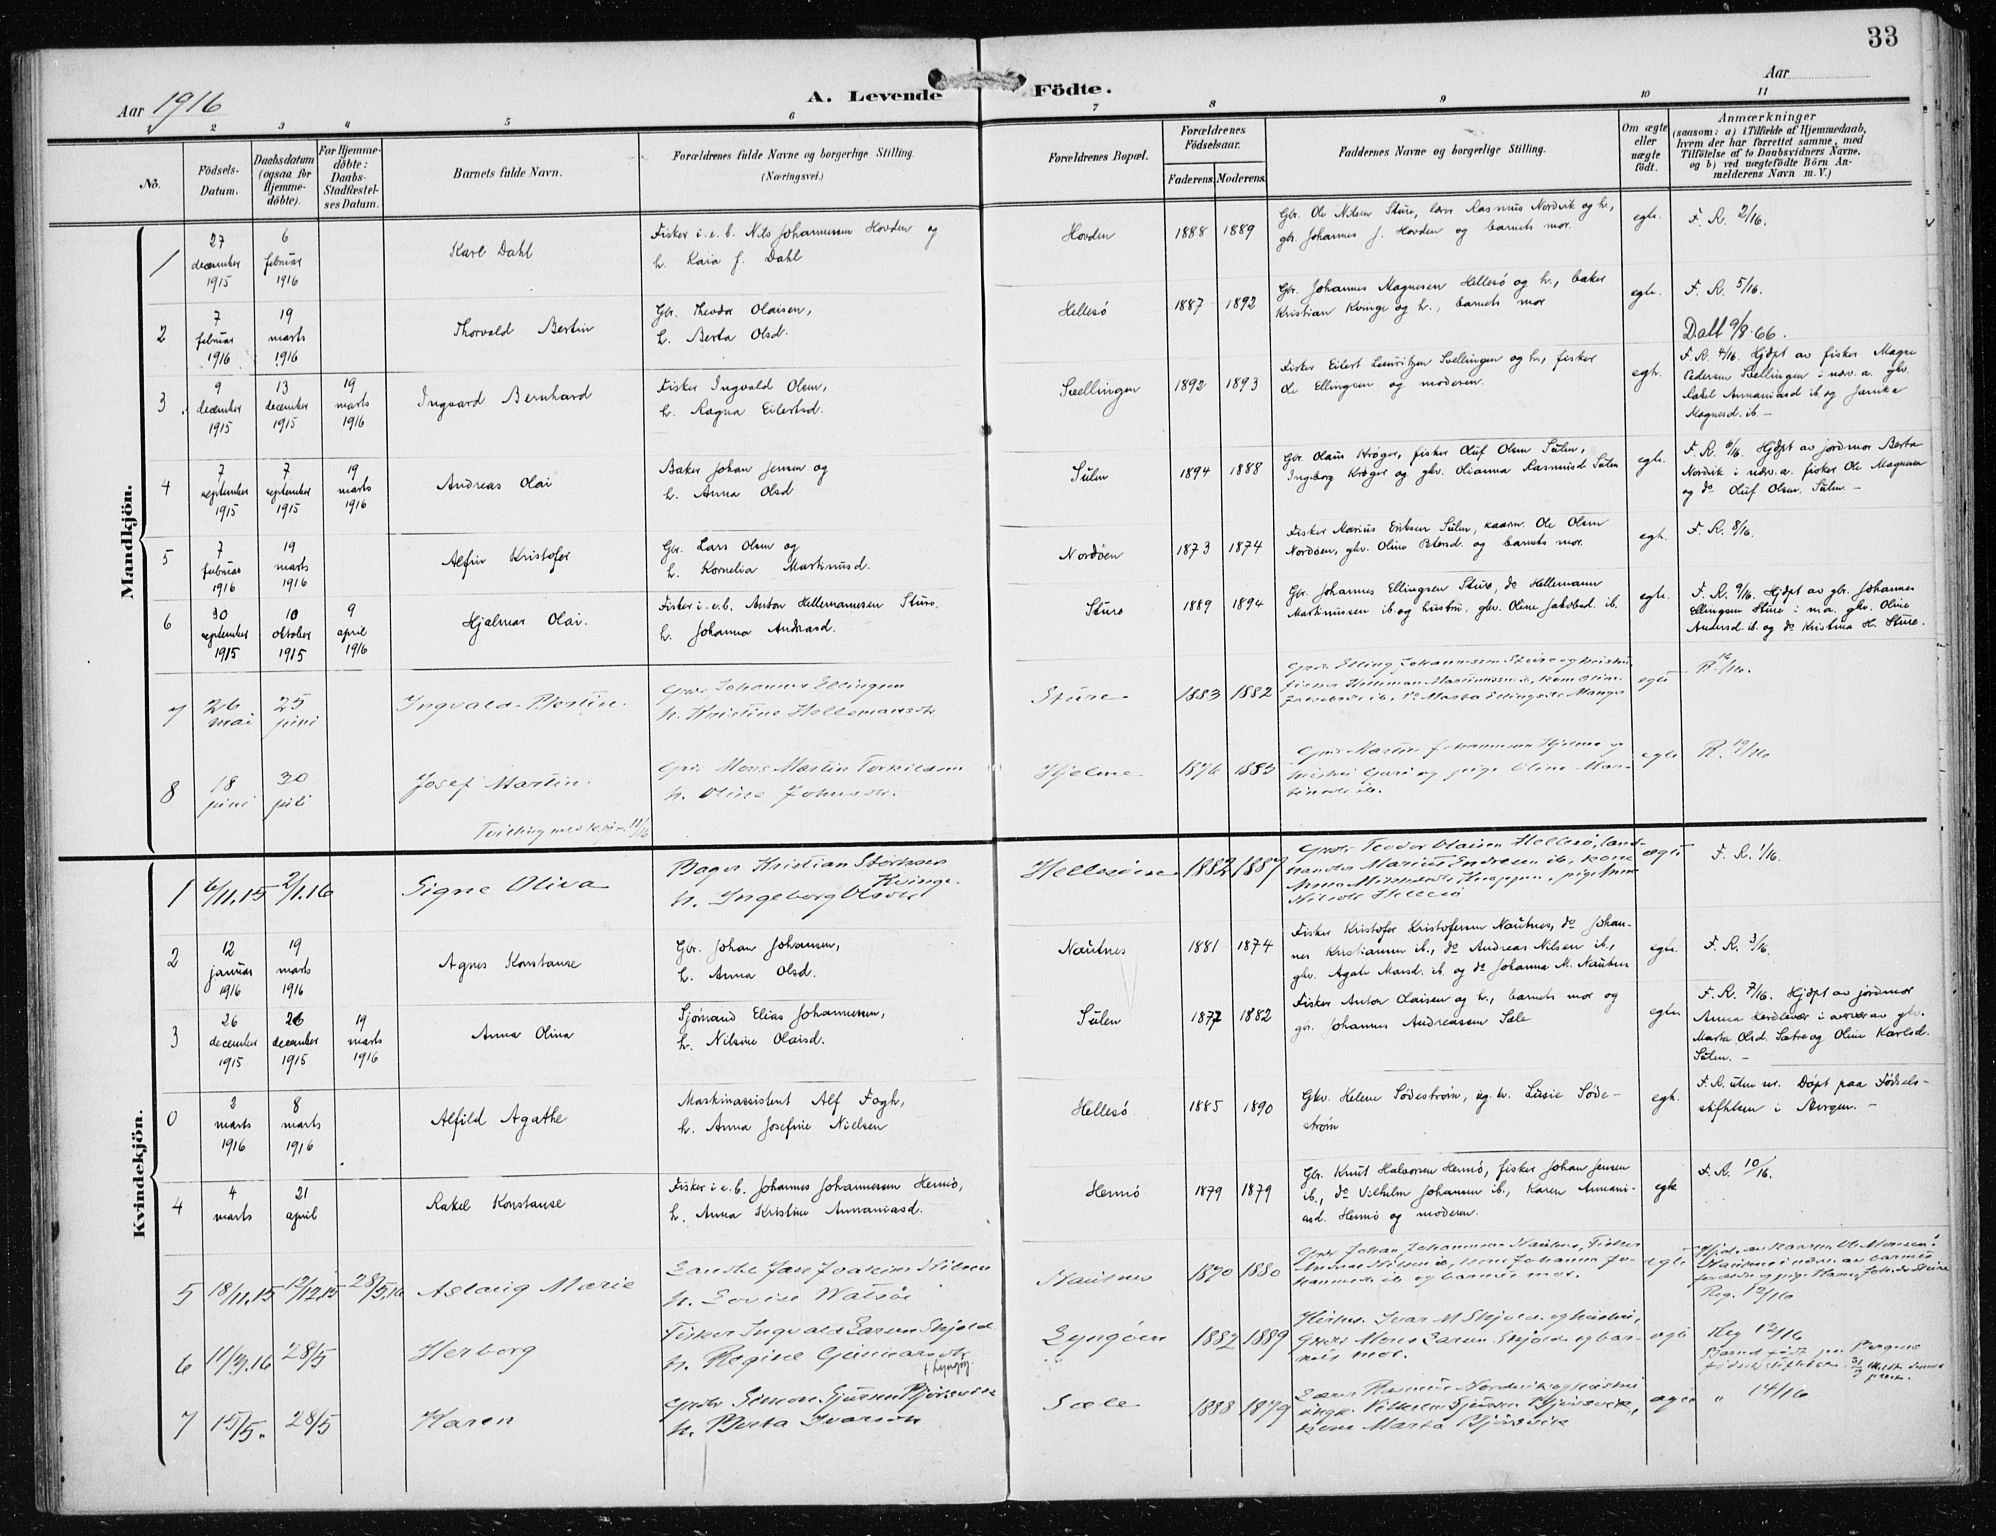 33
Aar 1916
A. Levende Födte.
Aar
2 3 4 5 6 7 8 9 10 11
No.
Födsels-
Datum.
Daabsdatum
(ogsaa for
Hjemme-
döbte).
For Hjemme-
döbte:
Daabs-
Stadfæstel-
ses Datum.
Barnets fulde Navn.
Forældrenes fulde Navne og borgerlige Stilling.
(Næringsvei.)
Forældrenes Bopæl.
Forældrenes
Födselsaar.
Faderens. Moderens.
Faddernes Navne og borgerlige Stilling.
Om ægte
eller
uægte
födt.
Anmærkninger
(saasom: a) i Tilfælde af Hjemmedaab,
hvem der har forrettet samme, med
Tilföielse af to Daabsvidners Navne,
og b) ved uægtefödte Börn An-
melderens Navn m. V.)
Mandkjön.
1
27
december
1915
6
februar
1916
Karl Dahl
Fisker i. e. b. Nils Johannessen Hovden og
h. Kaia J. Dahl
Hovden
1888 1889
Gbr. Ole Nilsen Sture, lærer Rasmus Nordvik og h.,
gbr. Johannes J. Hovden og barnets mor.
egte.
F. R. 2/16.
2
7
februar
1916
19
marts
1916
Thorvald Bertin
Gbr. Theodor Olaisen,
h. Berta Olsd.
Hellesö
1887 1892
Gbr. Johannes Magnesen Hellesö og h., baker
Kristian Kvinge og h., barnets mor
egte.
F. R. 5/16.
Dall 9/8.66.
3
9
december
1915
13
december
1915
19
marts
1916
Ingvard Bernhard
Fisker Ingvald Olsen,
h. Ragna Eilertsd.
Svellingen
1892 1893
Fisker Eilert Lauritzen Svellingen og h., fisker
Ole Ellingsen og moderen.
egte.
F. R. 4/16. Hjdpt av fisker Magne
Pedersen Svellingen i nærv. a. gkv.
Rakel Annaniasd ib. og Janika
Magnesd. ib. –
4
7
september
1915
7
september
1915
19
marts
1916
Andreas Olai
Baker Johan Jensen og
h. Anna Olsd
Sulen
1894 1888
Gbr. Olaus Kröger, fisker Oluf Olsen Sulen,
Ingeborg Kröger og gkv. Olianna Rasmusd Sulen
egte.
F. R. 6/16. Hjdpt av jordmor Berta
Nordvik i nærv. a. fisker Ole Magnesen
og do Oluf Olsen Sulen. –
5
7
februar
1916
19
marts
1916
Alfin Kristofer
Gbr. Lars Olsen og
h. Kornelia Markusd.
Nordöen
1873 1874
Fisker Marius Eriksen Sulen, kaarm. Ole Olsen
Nordöen, gkv. Oline Petersd. og barnets mor.
egte.
F. R. 8/16.
6
30
september
1915
10
oktober
1915
9
april
1916
Hjalmar Olai.
Fisker i. e. b. Anton Hellemannsen Sture,
h. Johanna Andreasd.
Sture
1889 1894
Gbr. Johannes Ellingsen Sture, do Hellemann
Martinussen ib. og hustru, gkv. Oline Jakobsd. ib.
egte.
F. R. 9/16. Hjdpt av gbr. Johannes
Ellingsen Sture i n. a. gkv. Oline
Andersd. ib. og do Kristina H. Sture.
7
26
mai
25
juni
Ingvald Bertin.
Gbr. Johannes Ellingsen
h. Kristine Hellemansdtr
Sture
1883 1882
egte
R. 16/16.
8
18
juni
30
juli
Josef Martin.
Gbr. Mons Martin Torkildsen
h. Oline Johnsdtr.
Tvilling med
Hjelme
1876 1883
Gbr. Martin Johannessen Hjelme og
egte
R. 19/16
Kvindekjön.
1
6/11.15
2/1.16
Signe Oliva
Bager Kristian Störksen
Kvinge.
h. Ingeborg Olsdtr
Hellesöen
1882 1887
Gbr. Teodor Olaisen Hellesö, land-
handler Marius Endresen ib., kone
Hellesö
egte
F. R. 1/16.
2
12
januar
1916
19
marts
1916
Agnes Konstanse
Gbr. Johan Johansen,
h. Anna Olsd.
Nautnes
1881 1874
Fisker Kristofer Kristofersen Nautnes, do Johan-
nes Kristiansen ib., do Andreas Nilsen ib.,
gkv. Agate Marsd. ib. og do Johanna M. Nautnes
egte.
F. R. 3/16.
3
26
december
1915
26
december
1915
19
marts
1916
Anna Olina
Sjömand Elias Johannessen,
h. Nilsine Olaisd.
Sulen
1877 1882
Fisker Anton Olaisen og h., barnets mor og
gbr. Johannes Andreassen Sæle
egte.
F. R. 7/16. Hjdpt av jordmor
Anna Kordelavær i nærvær av gkv.
Marta Olsd. Sætre og Oline Karlsd.
Sulen. –
0
3
marts
1916
8
marts
1916
Alfild Agathe
Maskinassistent Alf Fogh,
h. Anna Josefine Nielsen
Hellesö
1885 1890
Gkv. Helene Söderström, ug. kv. Lusie Söde-
ström
egte.
F. R. uten nr. Döpt paa Födsels-
stiftelsen i Bergen. –
4
4
marts
21
april
Rakel Konstanse
Fisker i e. b. Johannes Johannessen Hernö,
h. Anna Kristine Annaniasd.
Hernö
1879 1879
Gbr. Knut Halvorsen Hernö, fisker Johan Jensen
ib., do Vilhelm Johansen ib., Karen Annani-
asd. Hernö og moderen.
egte
F. R. 10/16.
5
18/11.15
12/12.15
28/5.16
Aslaug Marie
Landhd. Jan Joakim Nilsen
h. Lovise Watsöe
Nautnes
1890 1880
Gbr. Johan Johannessen Nautnes, Fisker
og barnets mor.
egte
Reg. 12/16
6
11/3.16
28/5
Herborg
Fisker Ingvald Larsen Skjold
h. Regine Gunnarsdtr
Lyngöy
Lyngöen
1882 1889
Ivar M Skjold og hustru,
Gbr. Mons Larsen Skjold og bar-
nets mor.
egte
Reg 13/16
Barnet födt paa Bergens
födselsstiftelse.
7
15/5.
28/5
Karen
Gbr. Simon Sjursen Björsvik
h. Berta Ivarson
Sæle
1888 1879
Lærer Rasmus Nordvik og hustru
ungk. Vilhelm Sjursen Björsvik,
kone Marta Björsvik
egte
" 14/16